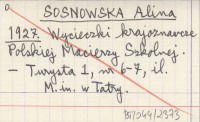 SOSNOWSKA Alina
1927. Wycieczki krajoznawcze
Polskiej Macierzy Szkolnej.
– Turysta 1, nr 6-7, il.
M. in. w Tatry.